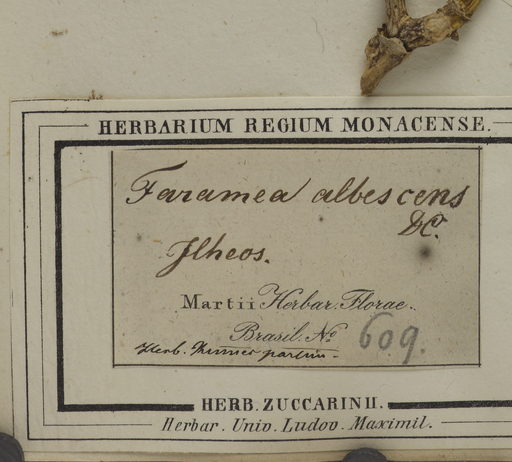 HERBARIUM REGIUM MONACENSE.
Faramea albescens
DC.
Ilheos.
Martii Herbar. Florae
Brasil. No 609.
Herb.
HERB. ZUCCARINII.
Herbar. Univ. Ludov. Maximil.